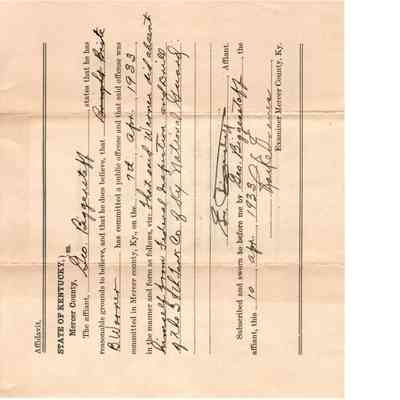 Affidavit.
STATE OF KENTUCKY,
Mercer County, } ss.
The affiant, Geo Biggerstaff states that he has
reasonable grounds to believe, and that he does believe, that
B. Warner has committed a public offense and that said offense was
committed in Mercer county, Ky., on the 7th Apr. 1933
in the manner and form as follows, viz: that said Warner did absent
himself from Federal Inspection and Drill
of the 38th Tank Co. of Ky National Guard.
Affiant.
Subscribed and sworn to before me by Geo. Biggerstaff, the
affiant, this 10 Apr. 1933
Examiner Mercer County, Ky.